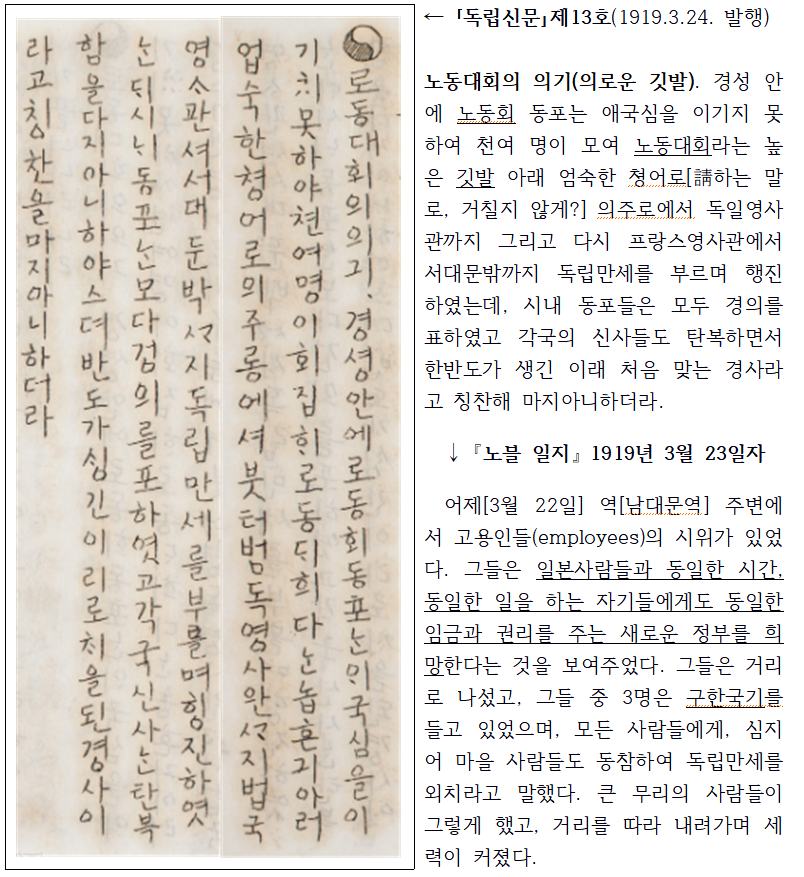 로동대회의의긔. 경셩안에로동회동포는익국심을이
기지못하야쳔여명이회집히로동디회다는놉흔긔아러
업숙한쳥어로의주롱에셔붓터범독영사완지법국
영소관셔서대문박지독립만세를부르며힝진하엿
는듸시니동포는모다검의를포하엿고각국신사는탄복
함을다지아니하야스며반도가싱긴이리로처음된경사이
라고칭찬을마지아니하더라
← 「독립신문」제13호(1919.3.24. 발행)
노동대회의 의기(의로운 깃발). 경성 안
에 노동회 동포는 애국심을 이기지 못
하여 천여 명이 모여 노동대회라는 높
은 깃발 아래 엄숙한 쳥어로[請하는 말
로, 거칠지 않게?] 의주로에서 독일영사
관까지 그리고 다시 프랑스영사관에서
서대문밖까지 독립만세를 부르며 행진
하였는데, 시내 동포들은 모두 경의를
표하였고 각국의 신사들도 탄복하면서
한반도가 생긴 이래 처음 맞는 경사라
고 칭찬해 마지아니하더라.
↓ 『노블 일지』 1919년 3월 23일자
어제[3월 22일] 역[남대문역] 주변에
서 고용인들(employees)의 시위가 있었
다. 그들은 일본사람들과 동일한 시간,
동일한 일을 하는 자기들에게도 동일한
임금과 권리를 주는 새로운 정부를 희
망한다는 것을 보여주었다. 그들은 거리
로 나섰고, 그들 중 3명은 구한국기를
들고 있었으며, 모든 사람들에게, 심지
어 마을 사람들도 동참하여 독립만세를
외치라고 말했다. 큰 무리의 사람들이
그렇게 했고, 거리를 따라 내려가며 세
력이 커졌다.